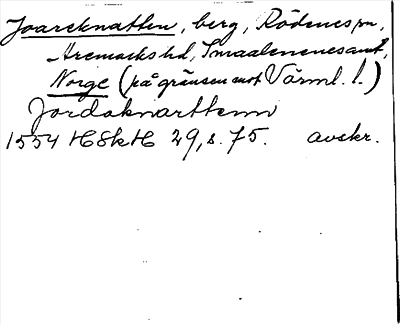 Joarcknatten, berg, Rödenes sn,
Aremarks hd, Smaalenenesamt,
Norge (på gränsen mot Värml. l.)
Jordaknarttenn
1554 HSkH 29, s. 75. avskr.